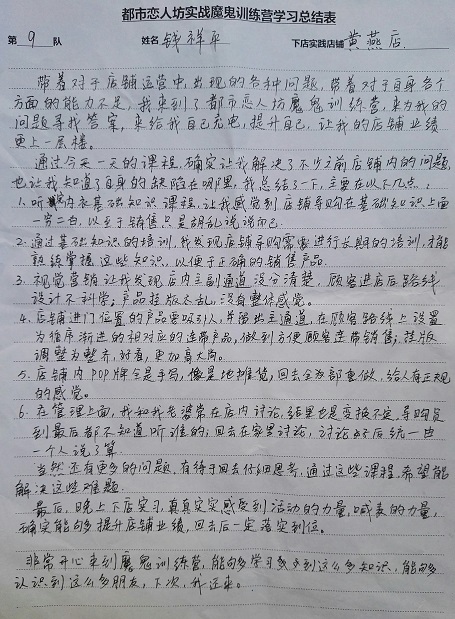 都市恋人坊实战魔鬼训练营学习总结表
第 9 队 姓名 钱祥平 下店实践店铺 黄燕店.
带着对于店铺运营中,出现的各种问题,带着对于自身各个
方面的能力不足,我来到了都市恋人坊魔鬼训练营,来为我的
问题寻找答案,来给我自己充电,提升自己,让我的店铺业绩
更上一层楼。
通过今天一天的课程,确实让我解决了不少之前店铺内的问题,
也让我知道了自身的缺陷在哪里,我总结了一下,主要在以下几点:
1. 听内衣基础知识课程,让我感觉到店铺导购在基础知识上面
一穷二白,以至于销售只是胡乱说说而已.
2. 通过基础知识的培训,我发现店铺导购需要进行长期的培训,才能
熟练掌握这些知识,以便于正确的销售产品.
3. 视觉营销让我发现店内主副通道没分清楚,顾客进店后路线
设计不科学,产品挂版太乱,没有整体感觉。
4. 店铺进门位置的产品要吸引人,并留出主通道,在顾客路线上设置
为循序渐进的相对应的连带产品,做到方便顾客连带销售;挂版
调整为整齐,好看,更加高大尚。
5. 店铺内POP牌全是手写,像是地摊货,回去全部重做,给人有正规
的感觉。
6. 在管理上面,我和我老婆常在店内讨论,结果也是变换不定,导购员
到最后都不知道听谁的;回去在家里讨论,讨论好后统一由
一个人说了算
当然还有更多的问题,有待于回去仔细思考,通过这些课程,希望能
解决这些难题.
最后,晚上下店实习,真真实实感受到活动的力量,喊麦的力量,
确实能够多提升店铺业绩,回去后一定落实到位。
非常开心来到魔鬼训练营,能够学习到这么多知识,能够
认识到这么多朋友,下次,我还来。